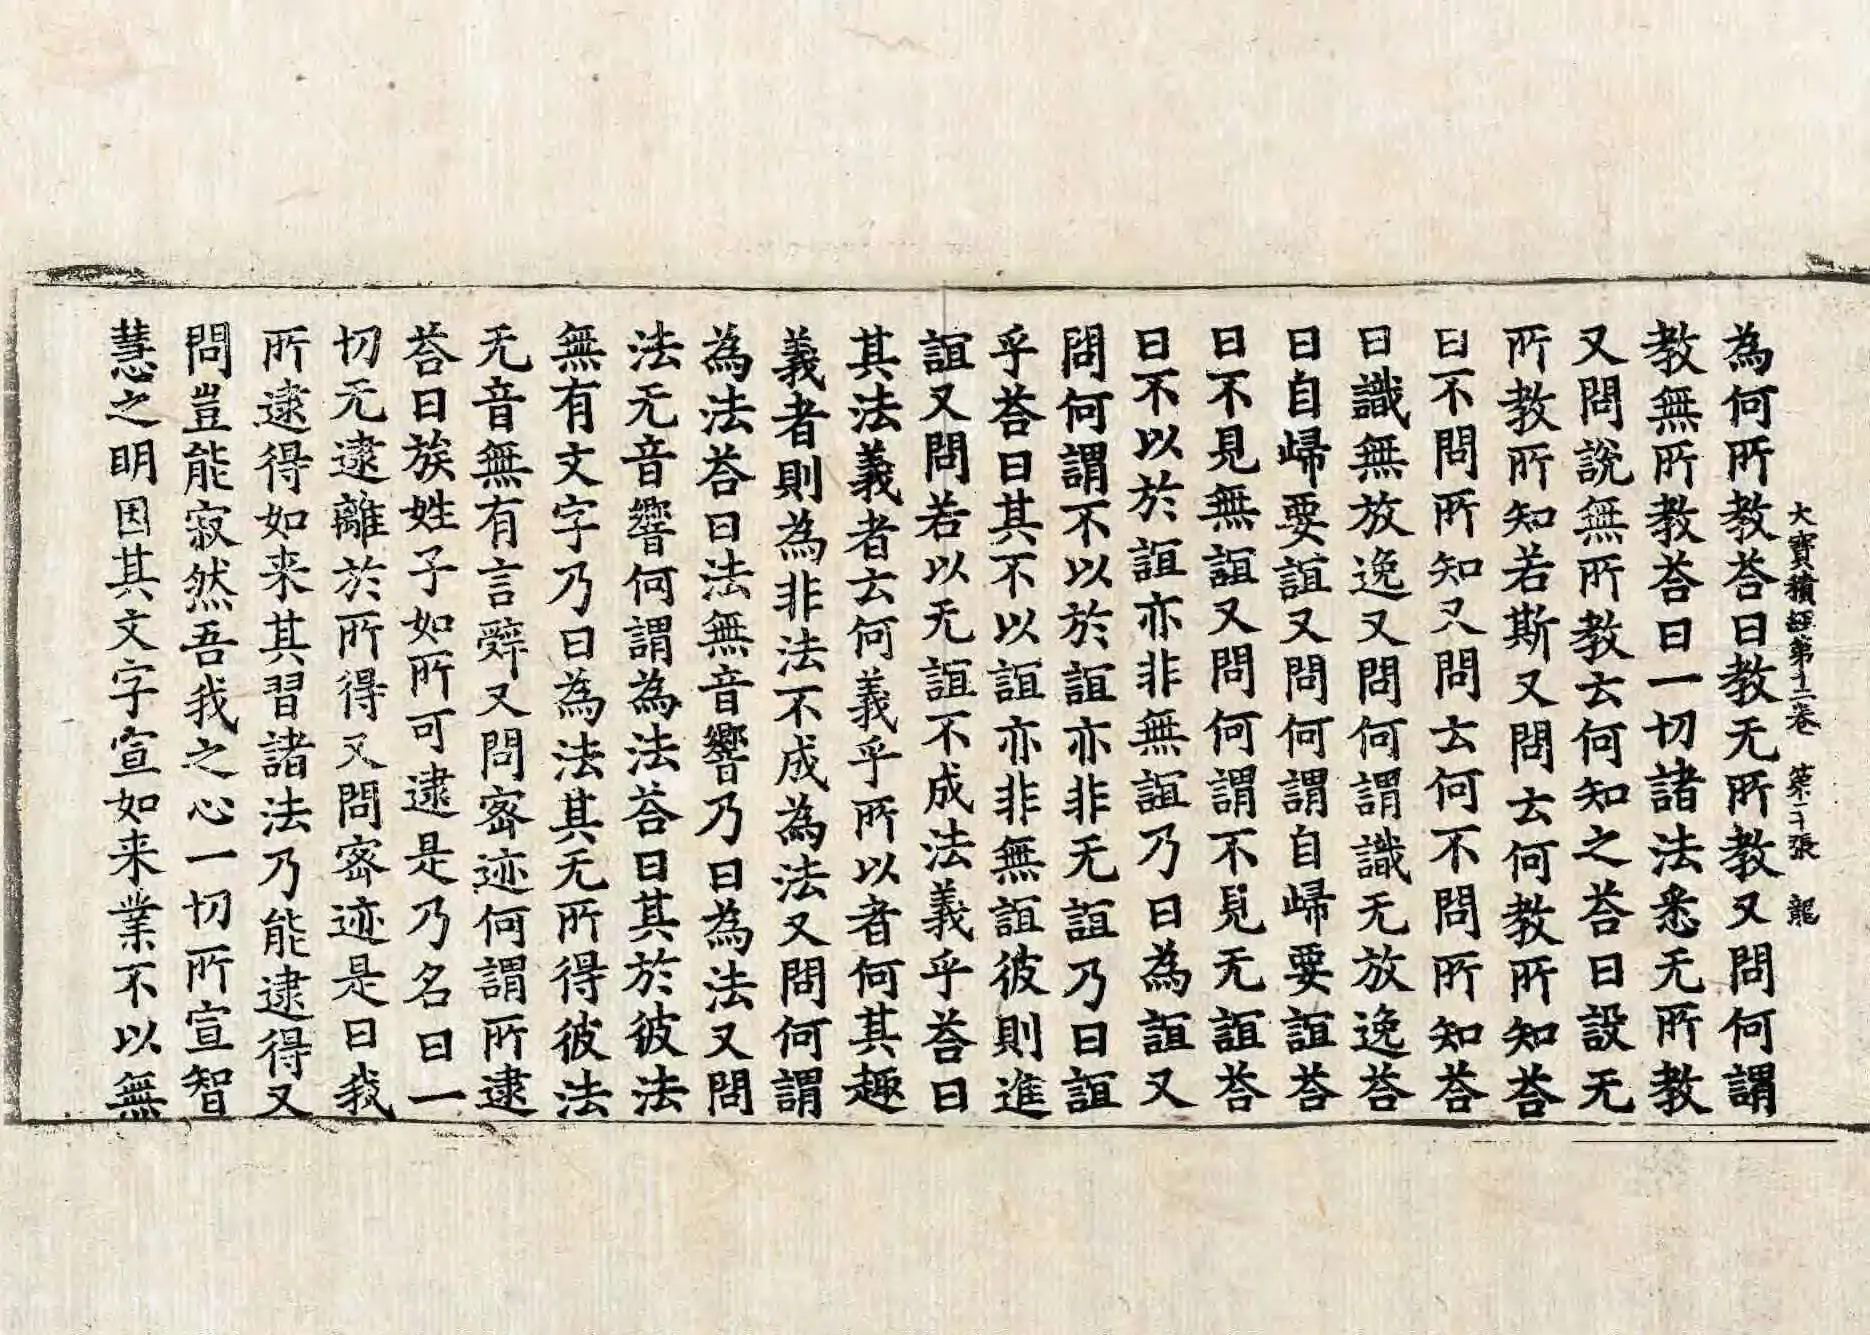 大寶積經第十二卷 第二十張 龍
為何所教荅曰教无所教又問何謂
教無所教荅曰一切諸法悉无所教
又問說無所教云何知之荅曰設无
所教所知若斯又問云何教所知荅
曰不問所知又問云何不問所知荅
曰識無放逸又問何謂識无放逸荅
曰自歸要誼又問何謂自歸要誼荅
曰不見無誼又問何謂不見无誼荅
曰不以於誼亦非無誼乃曰為誼又
問何謂不以於誼亦非无誼乃曰誼
乎荅曰其不以誼亦非無誼彼則進
誼又問若以无誼不成法義乎荅曰
其法義者云何義乎所以者何其趣
義者則為非法不成為法又問何謂
為法荅曰法無音響乃曰為法又問
法无音響何謂為法荅曰其於彼法
無有文字乃曰為法其无所得彼法
无音無有言辤又問密迹何謂所逮
荅曰族姓子如所可逮是乃名曰一
切无逮離於所得又問密迹是曰我
所逮得如来其習諸法乃能逮得又
問豈能寂然吾我之心一切所宣智
慧之明因其文字宣如来業不以無